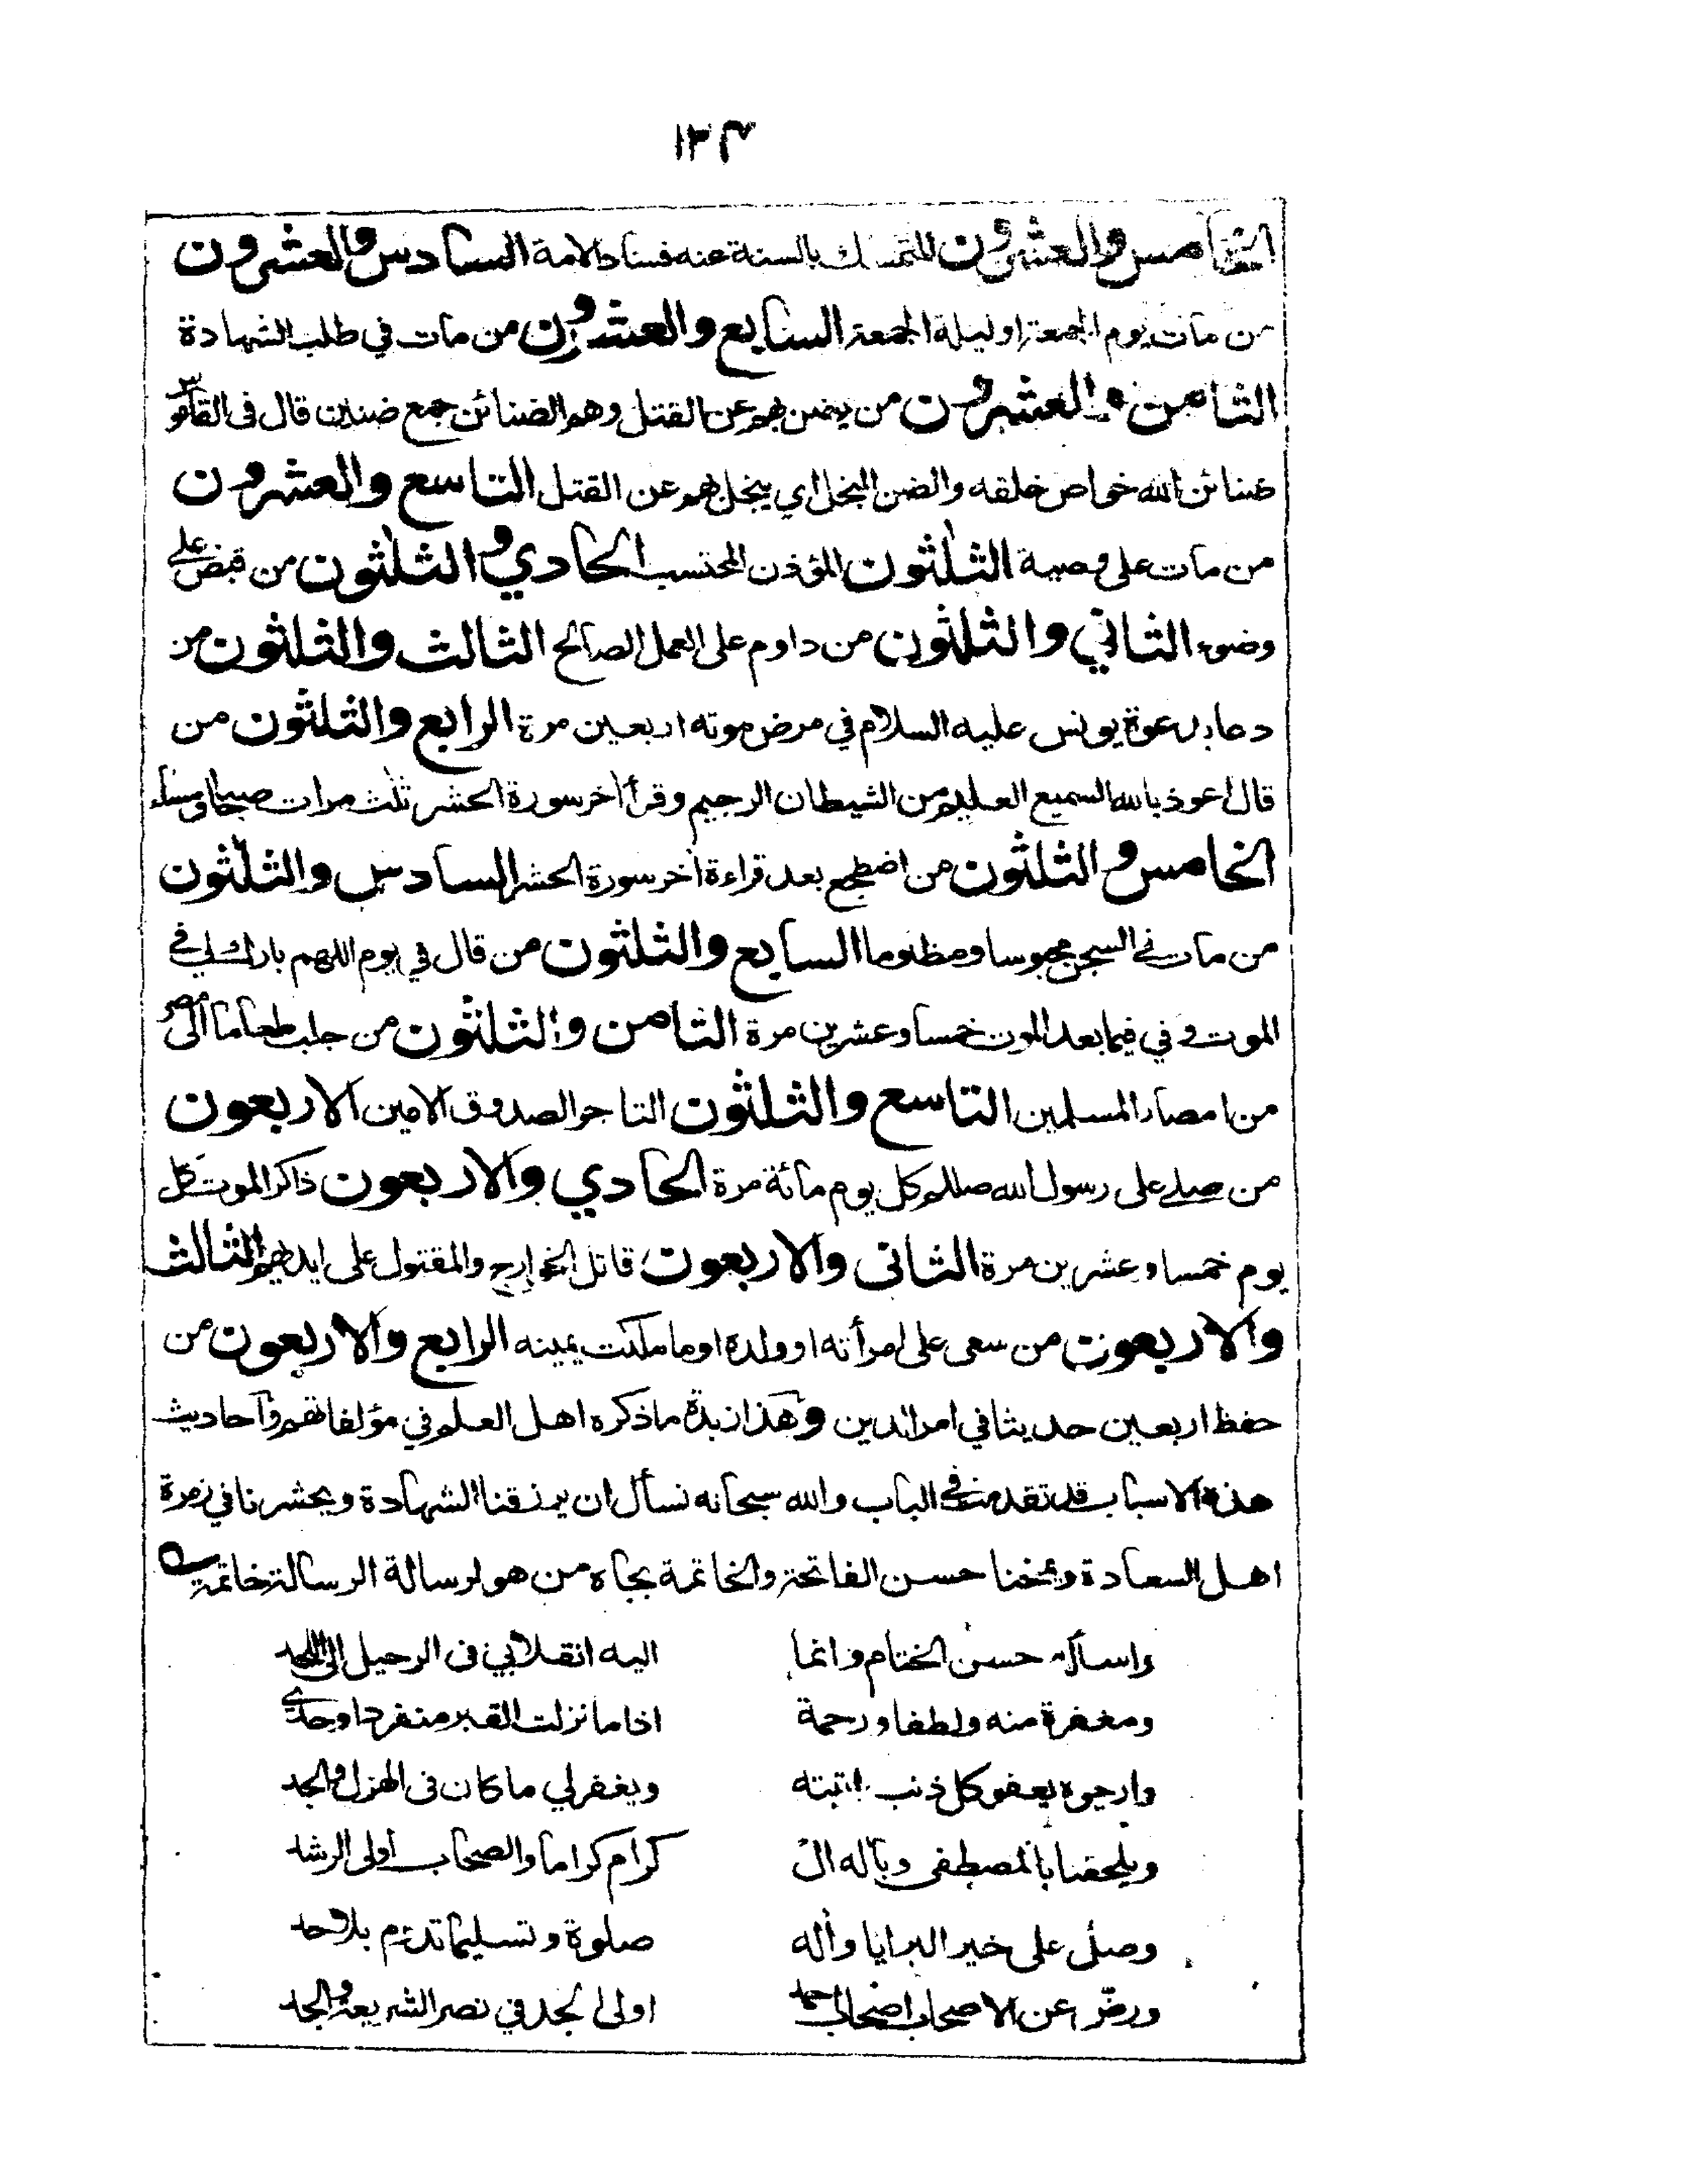 ١٢٣
الخامس والعشرون المتمسك بالسنة عند فساد الامة السادس والعشرون
من مات يوم الجمعة او ليلة الجمعة السابع والعشرون من مات في طلب الشهادة
الثامن والعشرون من يضن بهم عن القتل وهم الضنائن جمع ضنين قال في القاموس
ضنائن الله خواص خلقه والضن البخل اي يبخل بهم عن القتل التاسع والعشرون
من مات على وصية الثلثون المؤذن المحتسب الحادي والثلثون من قبض على
وضوء الثاني والثلثون من داوم على العمل الصالح الثالث والثلثون من
دعا بدعوة يونس عليه السلام في مرض موته اربعين مرة الرابع والثلثون من
قال اعوذ بالله السميع العليم من الشيطان الرجيم وقرأ آخر سورة الحشر ثلث مرات صباحا ومساء
الخامس والثلثون من اضطجع بعد قراءة آخر سورة الحشر السادس والثلثون
من مات في السجن محبوسا ومظلوما السابع والثلثون من قال في يوم اللهم بارك لي في
الموت وفي فيما بعد الموت خمسا وعشرين مرة الثامن والثلثون من جلب طعاما الى مصر
من امصار المسلمين التاسع والثلثون التاجر الصدوق الامين الاربعون
من صلى على رسول الله صللم كل يوم مائة مرة الحادي والاربعون ذاكر الموت كل
يوم خمسا وعشرين مرة الثانى والاربعون قاتل الخوارج والمقتول على ايديهم الثالث
والاربعون من سعى على امرأته او ولده او ما ملكت يمينه الرابع والاربعون من
حفظ اربعين حديثا في امر الدين وهذا زبدة ما ذكره اهل العلم في مؤلفاتهم وآحاديث
هذه الاسباب قد تقدمت في الباب والله سبحانه نسأل ان يرزقنا الشهادة ويحشرنا في زمرة
اهل السعادة ويمنحنا حسن الفاتحة والخاتمة بجاه من هو لرسالة الرسالة خاتمة
واسأله حسن الختام وانما اليه انقلابي فى الرحيل الى اللحد
ومغفرة منه ولطفا ورحمة اذا ما نزلت القبر منفردا وحدي
وارجوه يعفو كل ذنب اتيته ويغفر لي ما كان فى الهزل والجد
ويلحقنا بالمصطفى وبآله ال كرام كراما والصحاب أولى الرشد
وصل على خير البرايا وآله صلوة وتسليما تدوم بلا حد
ورض عن الاصحاب اصحاب احمد اولى الجد في نصر الشريعة والجد